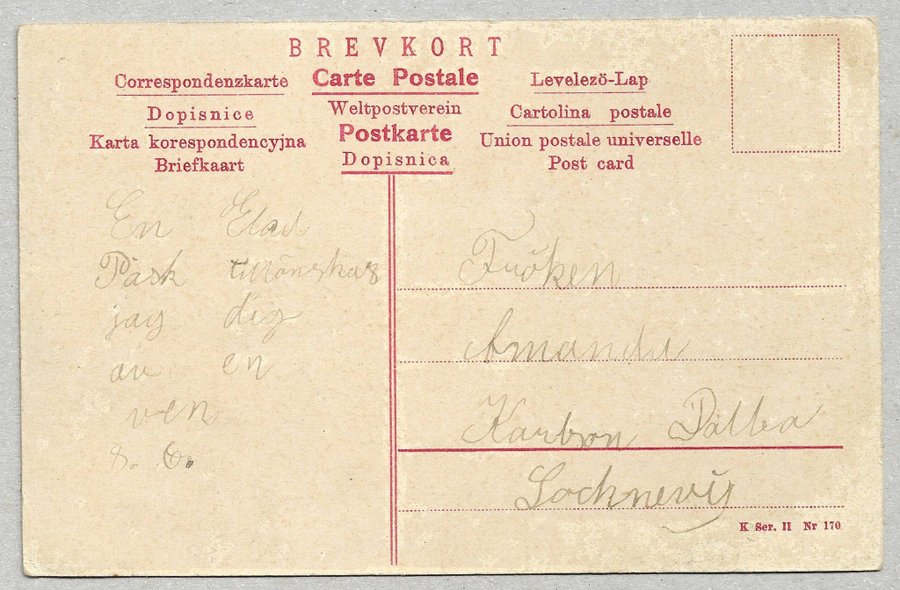 BREVKORT
Correspondenzkarte Carte Postale Levelezö-Lap
Dopisnice Weltpostverein Cartolina postale
Karta korespondencyjna Postkarte Union postale universelle
Briefkaart Dopisnica Post card
En Elad
Påsk tillönskas
jag dig
av en
ven
Fröken
Amanda
Karlson
Locknevi
K Ser. II Nr 170